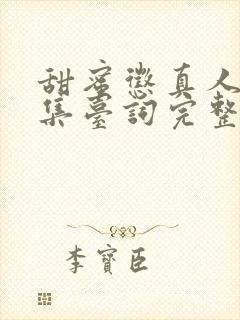 甜蜜懲真人
集臺詞完整
李寶臣